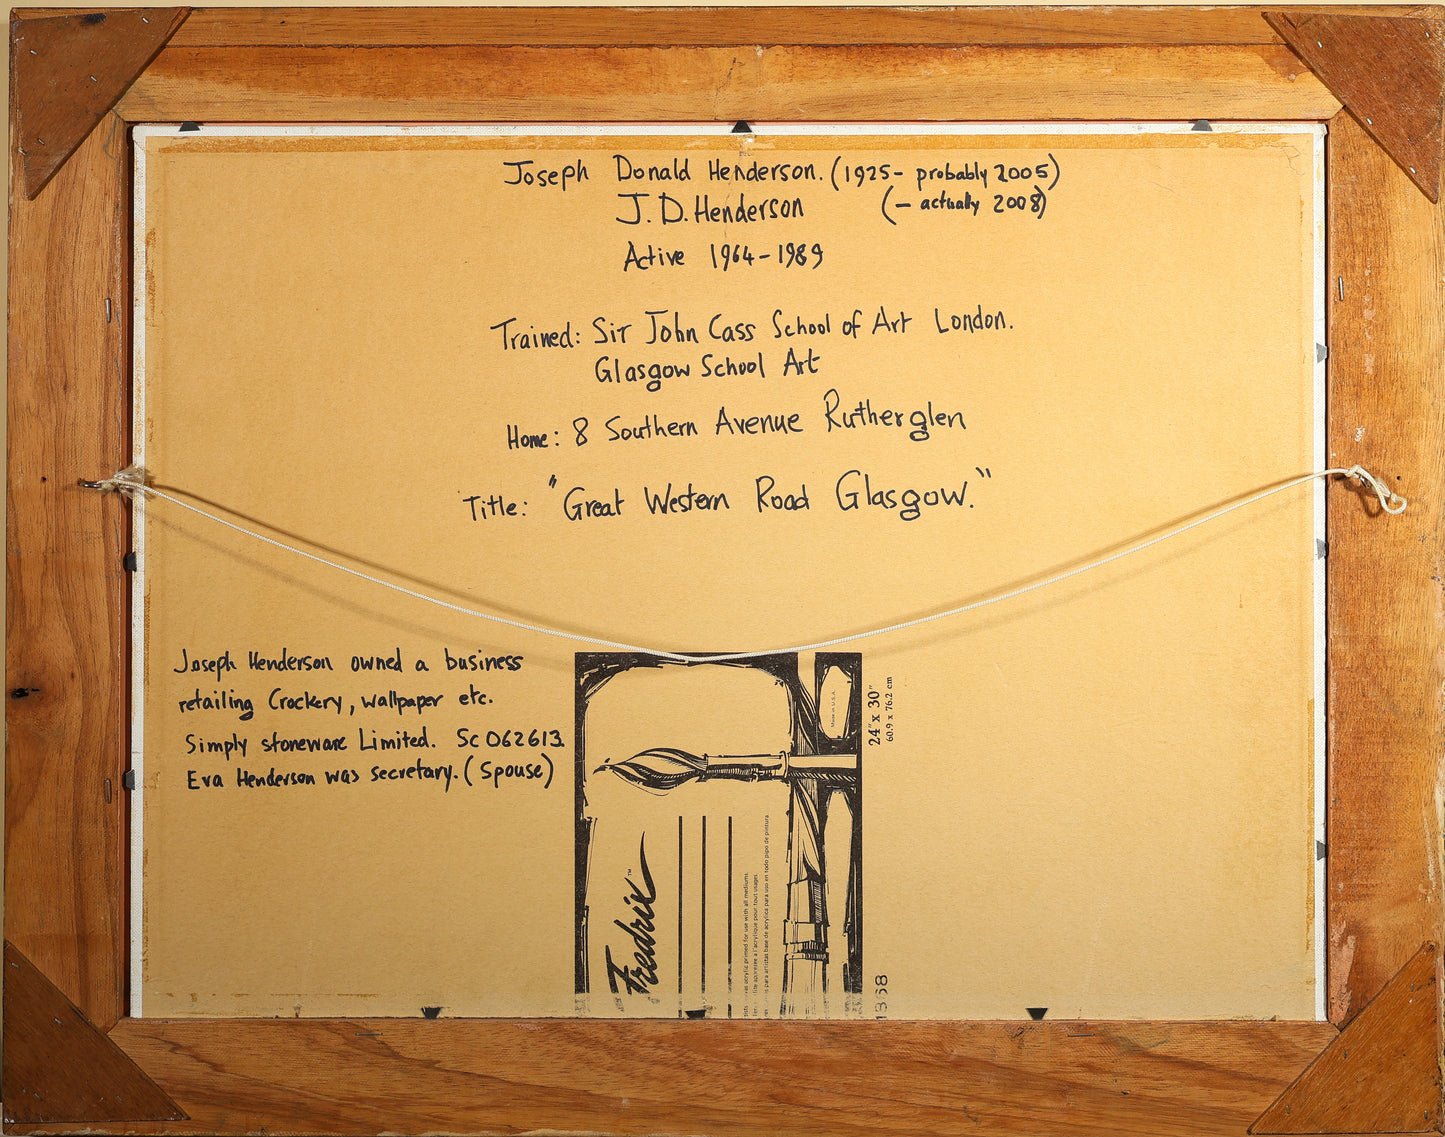 Joseph Donald Henderson. (1925- probably 2005)
J. D. Henderson (- actually 2008)
Active 1964-1989
Trained: Sir John Cass School of Art London.
Glasgow School Art
Home: 8 Southern Avenue Rutherglen
Title: "Great Western Road Glasgow."
Joseph Henderson owned a business
retailing Crockery, wallpaper etc.
Simply stoneware Limited. Sc 062613.
Eva Henderson was secretary. (Spouse)
Fredrix™
acrylic primed for use with all mediums.
Made in U.S.A.
24" x 30"
60.9 x 76.2 cm